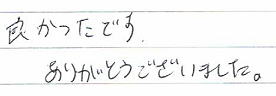 良かったです.
ありがとうございました。